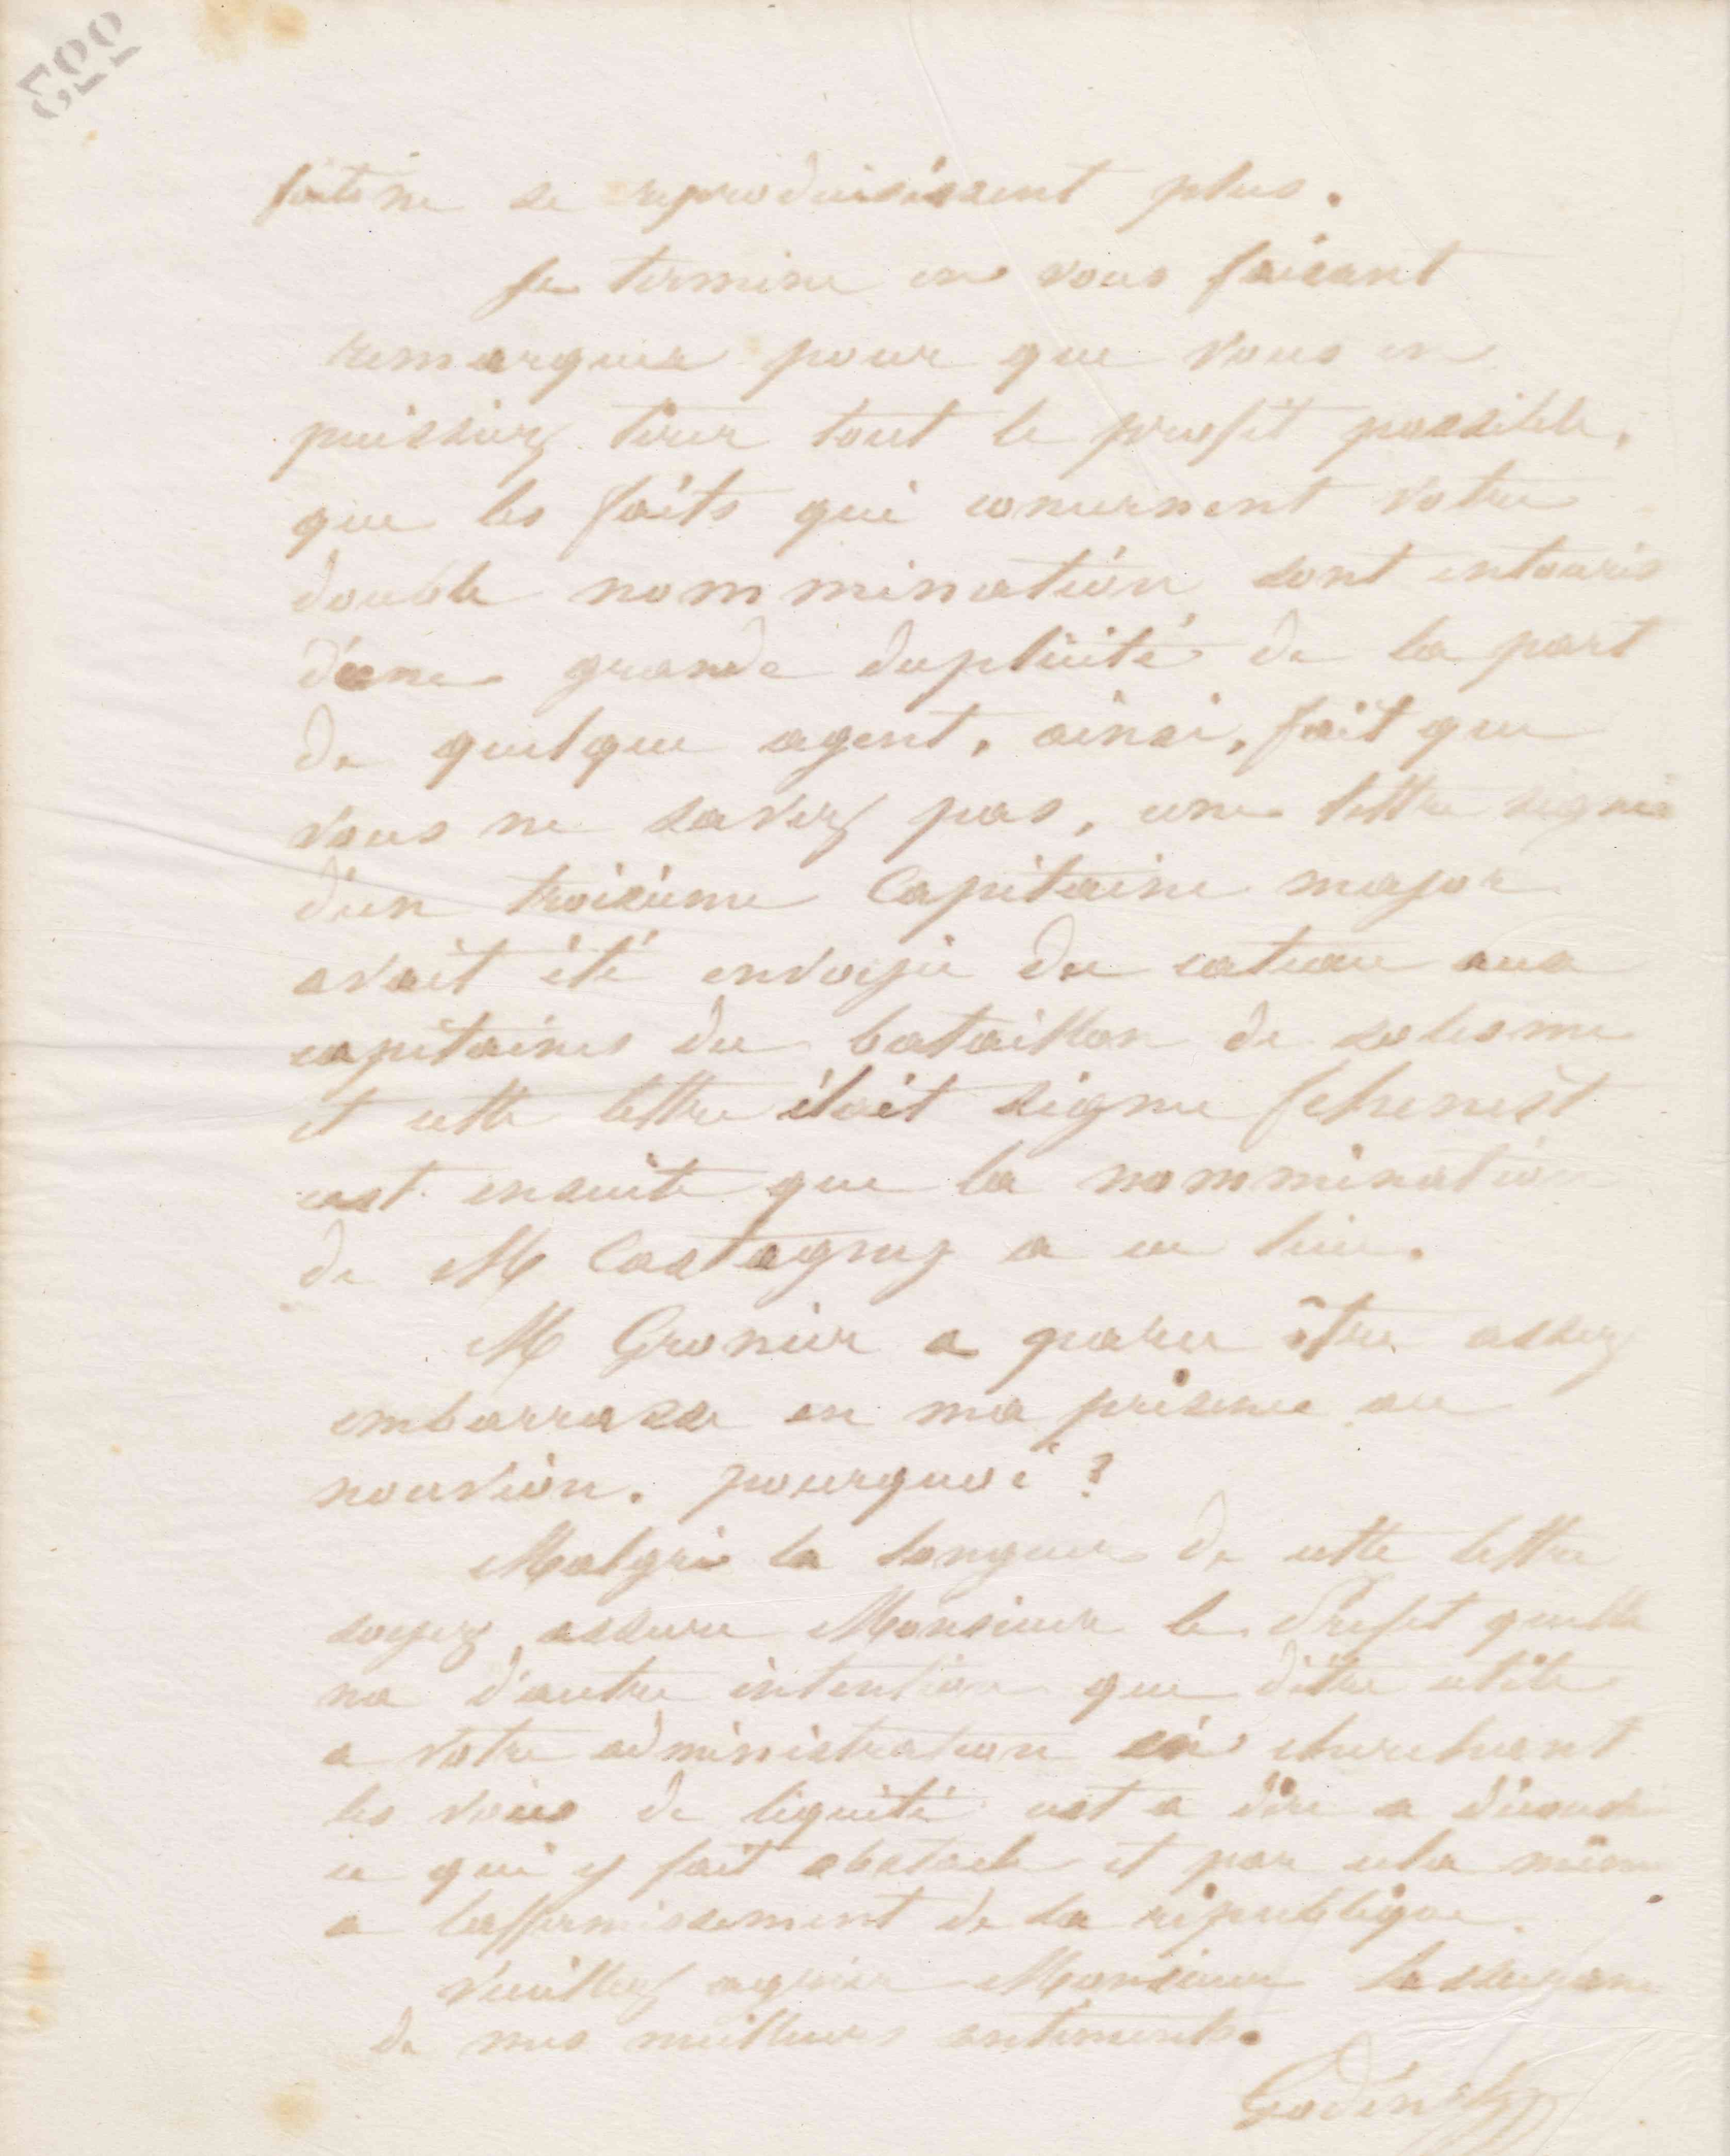 522
faits ne se reproduisissent plus.
Je termine en vous faisant
remarquer pour que vous en
puissiez tirer tout le profit possible,
que les faits qui concernent votre
double nommination sont entourés
d'une grande duplicité de la part
de quelque agent, ainsi, fait que
vous ne savez pas, une lettre signée
d'un troisième Capitaine major
avait été envoyée du cateau aux
capitaines du bataillon de solesme
et cette lettre était signe
cest ensuite que la nommination
de M Castagny a eu lieu.
M Gronier a paru être assez
embarrasse en ma présence au
nouvion. pourquoi ?
Malgré la longueur de cette lettre
soyez assure Monsieur le Prefet quelle
na d'autre intention que d'être utile
a votre administration en cherchant
les voies de léquité cest a dire a
ce qui y fait obstacle et par cela même
a laffermissement de la république.
Veuillez agréer Monsieur lassurance
de mes meilleurs sentiments.
Godin